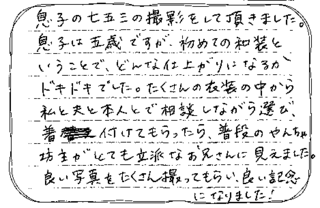 息子の七五三の撮影をして頂きました。
息子は五歳ですが、初めての和装と
いうことで、どんな仕上がりになるか
ドキドキでした。たくさんの衣装の中から
私と夫と本人とで相談しながら選び、
着付けてもらったら、普段のやんちゃ
坊主がとても立派なお兄さんに見えました。
良い写真をたくさん撮ってもらい、良い記念
になりました！